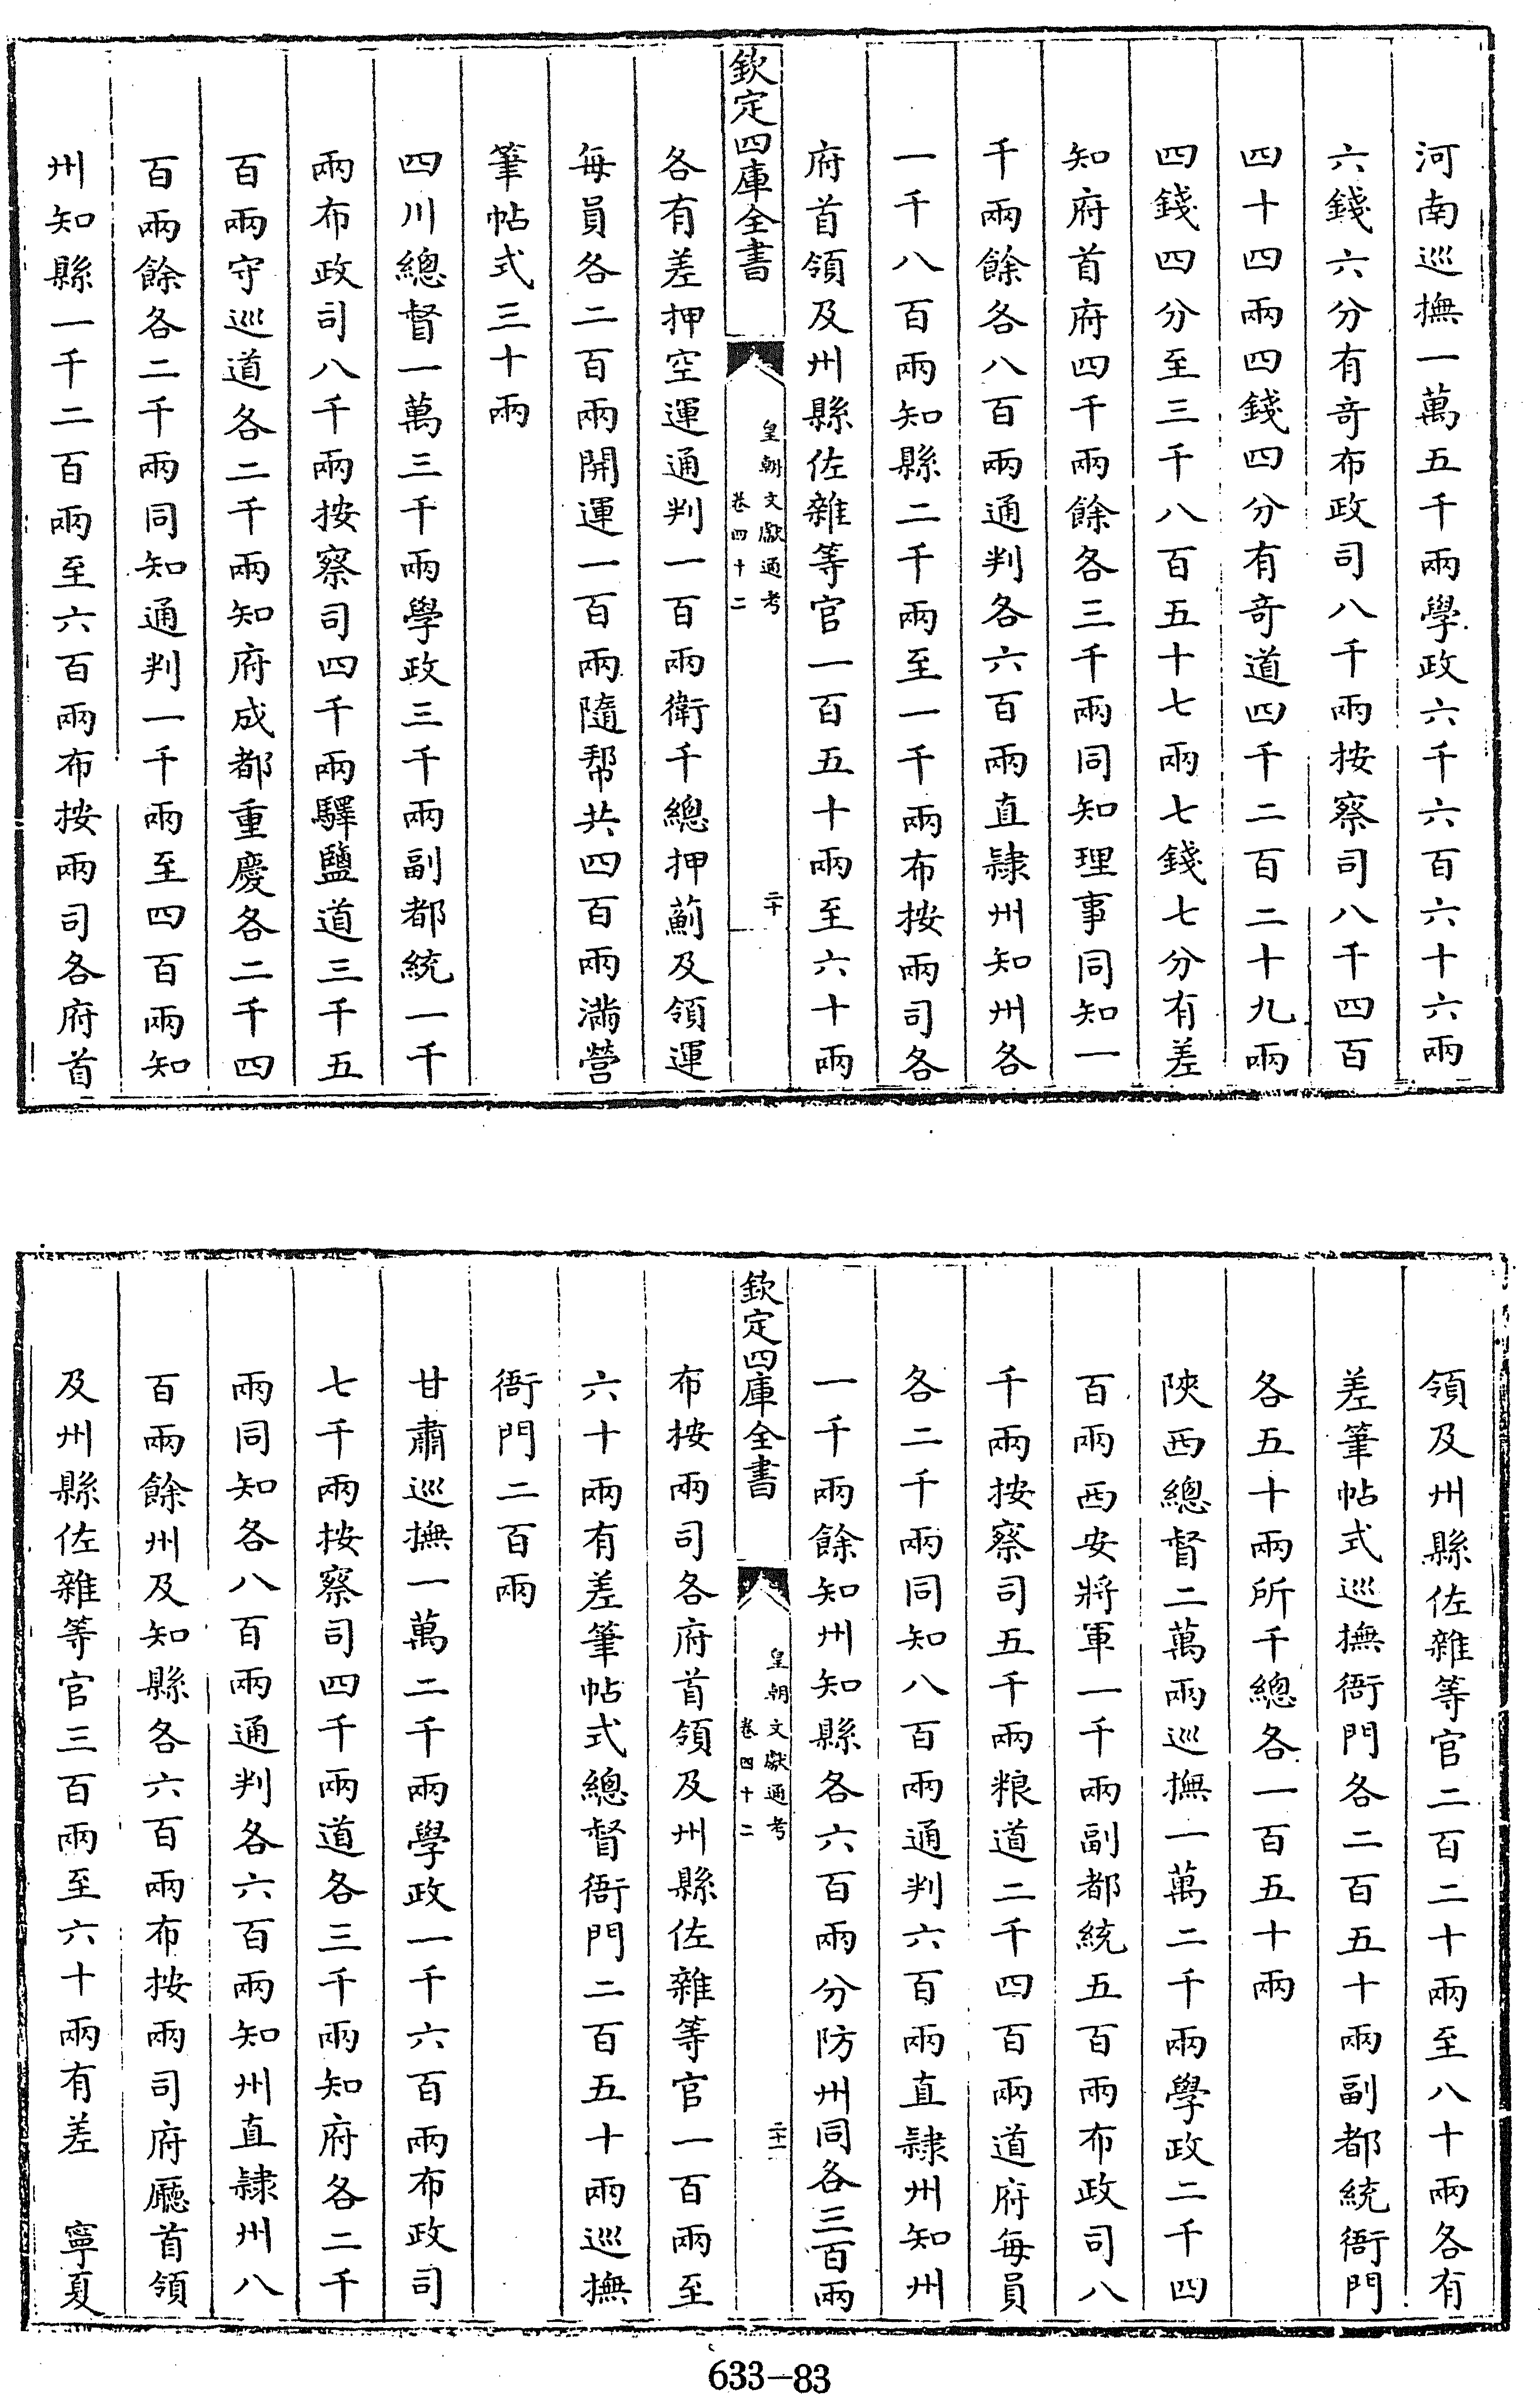 河南巡撫一萬五千兩學政六千六百六十六兩
六錢六分有奇布政司八千兩按察司八千四百
四十四兩四錢四分有奇道四千二百二十九兩
四錢四分至三千八百五十七兩七錢七分有差
知府首府四千兩餘各三千兩同知理事同知一
千兩餘各八百兩通判各六百兩直隸州知州各
一千八百兩知縣二千兩至一千兩布按兩司各
府首領及州縣佐雜等官一百五十兩至六十兩
欽定四庫全書
皇朝文獻通考
卷四十二
二十
各有差押空運通判一百兩衛千總押薊及領運
每員各二百兩開運一百兩隨幇共四百兩滿營
筆帖式三十兩
四川總督一萬三千兩學政三千兩副都統一千
兩布政司八千兩按察司四千兩驛鹽道三千五
百兩守巡道各二千兩知府成都重慶各二千四
百兩餘各二千兩同知通判一千兩至四百兩知
州知縣一千二百兩至六百兩布按兩司各府首
領及州縣佐雜等官二百二十兩至八十兩各有
差筆帖式巡撫衙門各二百五十兩副都統衙門
各五十兩所千總各一百五十兩
陝西總督二萬兩巡撫一萬二千兩學政二千四
百兩西安將軍一千兩副都統五百兩布政司八
千兩按察司五千兩粮道二千四百兩道府每員
各二千兩同知八百兩通判六百兩直隸州知州
一千兩餘知州知縣各六百兩分防州同各三百兩
欽定四庫全書
皇朝文獻通考
卷四十二
二十一
布按兩司各府首領及州縣佐雜等官一百兩至
六十兩有差筆帖式總督衙門二百五十兩巡撫
衙門二百兩
甘肅巡撫一萬二千兩學政一千六百兩布政司
七千兩按察司四千兩道各三千兩知府各二千
兩同知各八百兩通判各六百兩知州直隸州八
百兩餘州及知縣各六百兩布按兩司府廳首領
及州縣佐雜等官三百兩至六十兩有差 寧夏
633-83